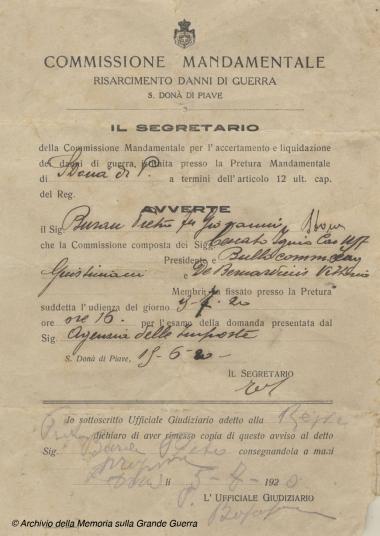 COMMISSIONE MANDAMENTALE
RISARCIMENTO DANNI DI GUERRA
S. DONÀ DI PIAVE
IL SEGRETARIO
della Commissione Mandamentale per l'accertamento e liquidazione
dei danni di guerra, riunita presso la Pretura Mandamentale
di S Dona di P. a termini dell'articolo 12 ult. cap.
del Reg.
AVVERTE
il Sig. Buran Pietro fu Giovanni
che la Commissione composta dei Sigg.
Presidente e Bullo
Giustiniani e De Bernardinis
Membri è fissato presso la Pretura
suddetta l'udienza del giorno 5-7-20
ore ore 16. per l'esame della domanda presentata dal
Sig. Agenzia delle imposte
S. Donà di Piave, 15-6-20
IL SEGRETARIO
Io sottoscritto Ufficiale Giudiziario adetto alla
dichiaro di aver rimesso copia di questo avviso al detto
Sig. consegnandola a mani
li 3-7 1920
L' UFFICIALE GIUDIZIARIO
© Archivio della Memoria sulla Grande Guerra